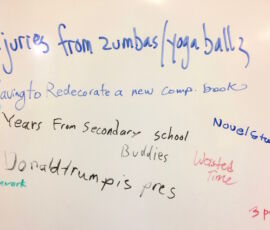 juries from zumbas/yoga ballz
aving to Redecorate a new comp. book
Years From Secondary school
Novel Stu
Buddies
Donaldtrumpis pres
Wasted
Time
ework
3 p